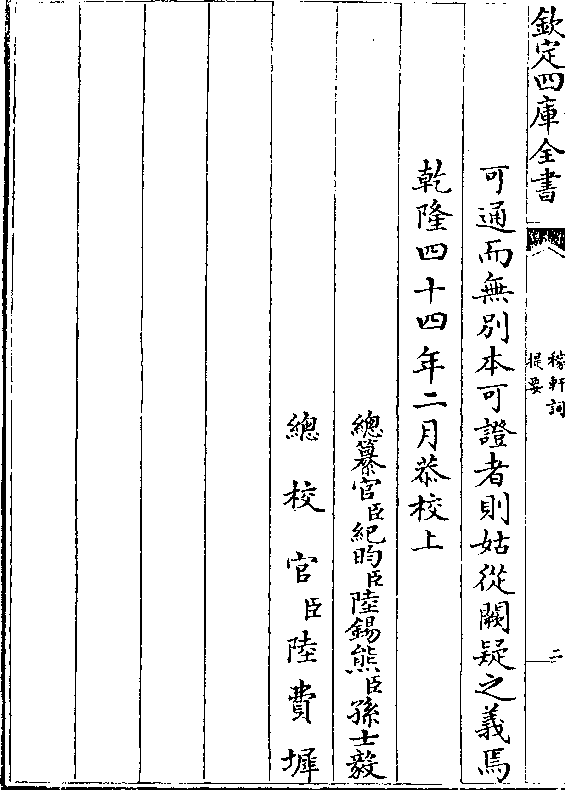 欽定四庫全書
稼軒詞
提要
二
可通而無別本可證者則姑從闕疑之義焉
乾隆四十四年二月恭校上
總纂官臣紀昀臣陸錫熊臣孫士毅
總校官臣陸費墀